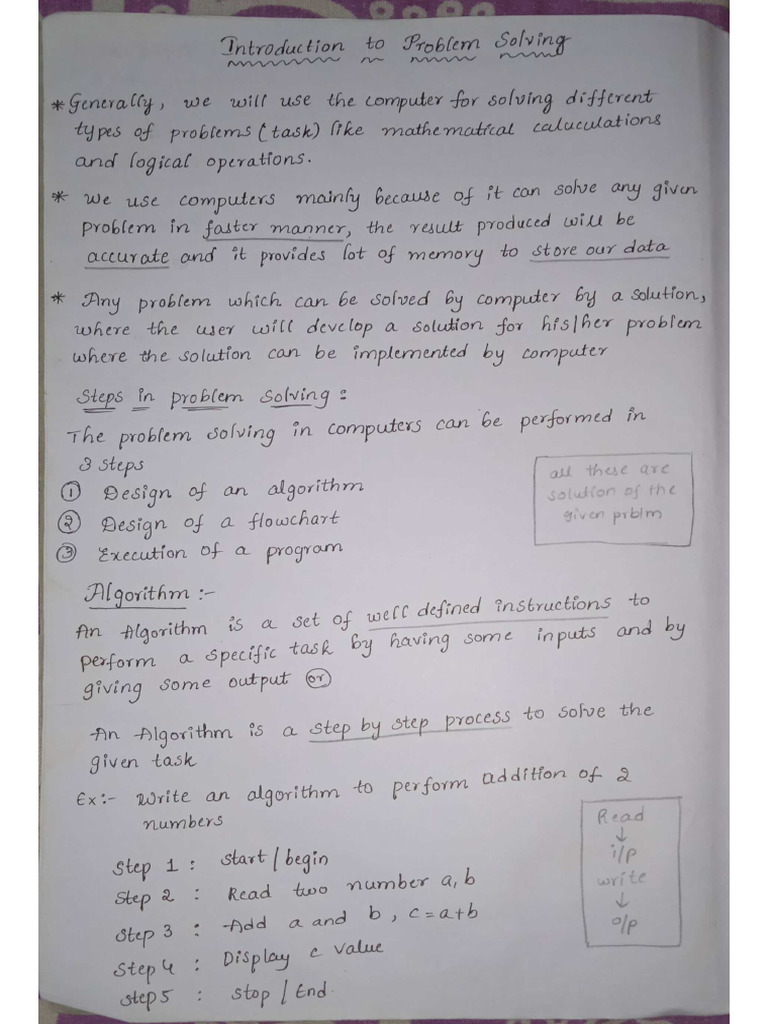 Introduction to Problem Solving
* Generally, we will use the computer for solving different
types of problems (task) like mathematical caluculations
and logical operations.
* we use computers mainly because of it can solve any given
problem in faster manner, the result produced will be
accurate and it provides lot of memory to store our data
* Any problem which can be solved by computer by a solution,
where the user will develop a solution for his/her problem
where the solution can be implemented by computer
Steps in problem solving :
The problem solving in computers can be performed in
3 steps
① Design of an algorithm
② Design of a flowchart
③ Execution of a program
all these are
solution of the
given prblm
Algorithm :-
An Algorithm is a set of well defined instructions to
perform a specific task by having some inputs and by
giving some output (or)
An Algorithm is a step by step process to solve the
given task
Ex:- Write an algorithm to perform addition of 2
numbers
Step 1 : Start / begin
Step 2 : Read two number a, b
Step 3 : Add a and b, c = a+b
Step 4 : Display c value
Step 5 : Stop / End.
Read
↓
i/p
write
↓
o/p